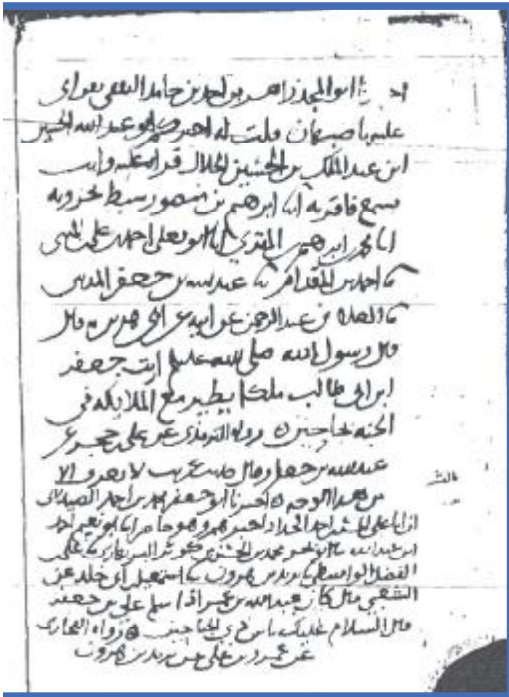 ابو المجد زاهر بن احمد بن حامد الثقفي بقراتي
عليه باصبهان قلت له اخبركم ابو عبد الله الحسين
ابن عبد الملك بن الحسين الخلال قراه عليه وانت
تسمع فاقر به انا ابرهيم بن منصور سبط بحرويه
انا محمد بن ابرهيم بن المقري انا ابو يعلى احمد بن علي بن المثنى
احمد بن المقدام نا عبد الله بن جعفر المديني
العلاء بن عبد الرحمن عن ابيه عن ابي هريرة قال
قال رسول الله صلى الله عليه رايت جعفر
ابن ابي طالب ملكا يطير مع الملايكه في
الجنه بجناحين رواه الترمذي عن علي بن حجر عن
عبد الله بن جعفر وقال حديث غريب لا يعرف الا
من هذا الوجه اخبرنا ابو جعفر محمد بن احمد الصيدلاني
ان ابا علي الحسن بن احمد الحداد اخبرهم وهو حاضر انا ابو نعيم احمد
ابن عبد الله نا محمد بن الحسن بن كوثر البربهاري نا علي
الفضل الواسطي نا يزيد بن هرون نا اسمعيل بن ابي خلد عن
الشعبي قال كان عبد الله بن عمر اذا سلم على بن جعفر
قال السلام عليك يا بن ذي الجناحين رواه البخاري
عن عمرو بن علي عن يزيد بن هرون